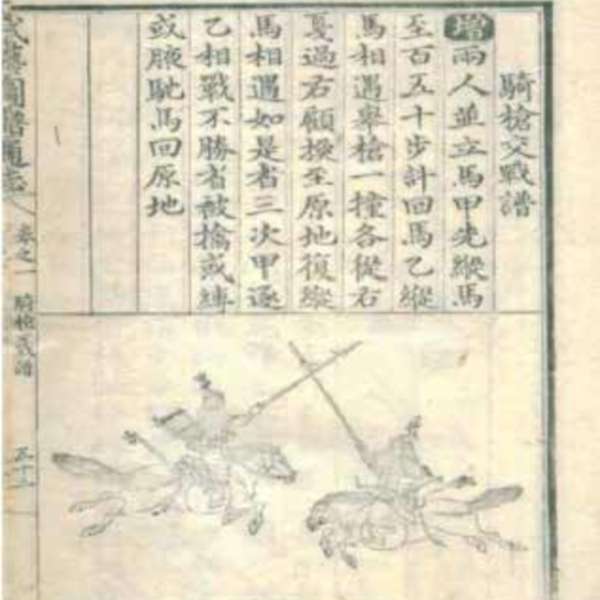 騎槍交戰譜
增兩人並立馬甲先縱馬
至百五十步計回馬乙縱
馬相遇舉槍一撞各從右
戞過右顧揆至原地復縱
馬相遇如是者三次甲逐
乙相戰不勝者被擒或縛
或腋馳馬回原地
武藝圖譜通志 卷之一 騎槍 譜 五十三